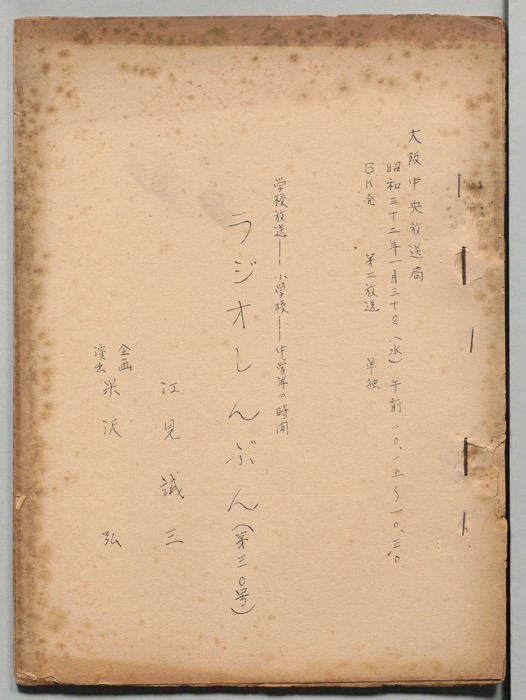 大阪中央放送局
昭和三十二年一月三十日(水)午前一〇.一五~一〇.三〇
BK発 第二放送 単独
学校放送――小学校――中学年の時間
ラジオしんぶん(第三〇号)
江見誠三
企画
演出 米浜 弘